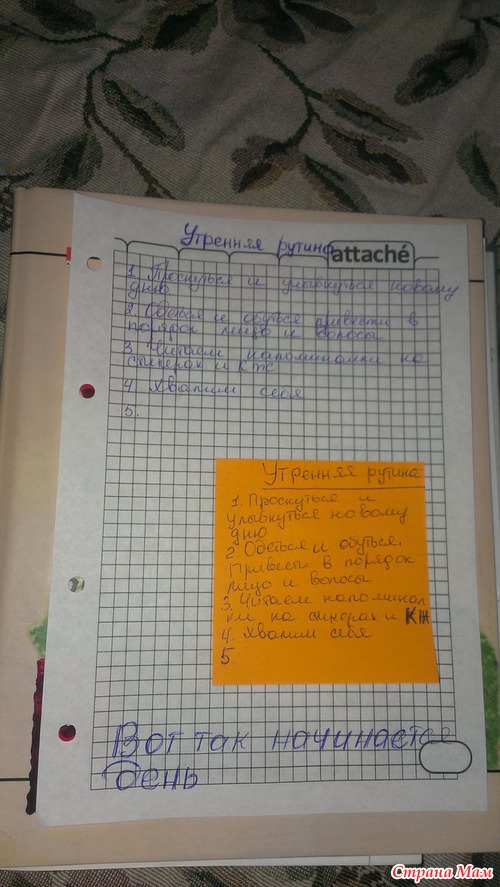 Утренняя рутина
attaché
1. Проснуться и улыбнуться новому
дню
2. Одеться и обуться привести в
порядок лицо и волосы
3. Читаем напоминалки на
стикерах и КЖ
4 Хвалим себя
5.
Утренняя рутина
1. Проснуться и
улыбнуться новому
дню
2. Одеться и обуться.
Привести в порядок
лицо и волосы
3. Читаем напоминал
ки на стикерах и КЖ
4. Хвалим себя
5.
Вот так начинается
день
Страна Мам